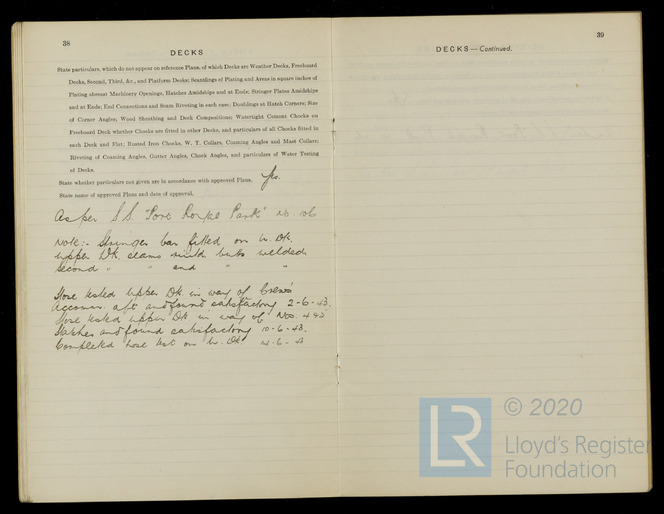 38
DECKS
State particulars, which do not appear on reference Plans, of which Decks are Weather Decks, Freeboard
Decks, Second, Third, &c., and Platform Decks; Scantlings of Plating and Areas in square inches of
Plating abreast Machinery Openings, Hatches Amidships and at Ends; Stringer Plates Amidships
and at Ends; End Connections and Seam Riveting in each case; Doublings at Hatch Corners; Size
of Corner Angles; Wood Sheathing and Deck Compositions; Watertight Cement Chocks on
Freeboard Deck whether Chocks are fitted in other Decks, and particulars of all Chocks fitted in
each Deck and Flat; Rusted Iron Chocks, W. T. Collars, Coaming Angles and Mast Collars;
Riveting of Coaming Angles, Gutter Angles, Chock Angles, and particulars of Water Testing
of Decks.
State whether particulars not given are in accordance with approved Plans. Yes.
State name of approved Plans and date of approval.
As per S.S. "Port Royal Park"
Note:- Stringer bar fitted on u. Dk.
Upper Dk. seams rivtd butts welded
Second " " and " "
Hose tested upper Dk. in way of Crews
Accomm. aft and found satisfactory 2-6-43.
Hose tested upper Dk in way of Nos. 4 & 5
Hatches and found satisfactory 10-6-43.
Completed hose test on u. Dk.
39
DECKS—Continued.
LR
© 2020
Lloyd's Register
Foundation